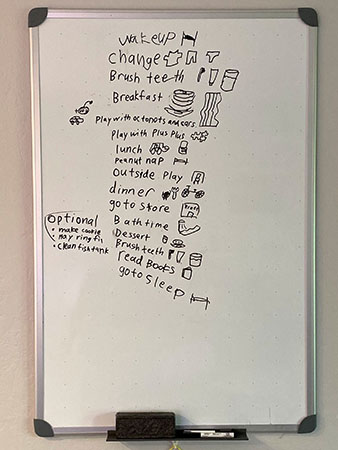 wakeup
change
Brush teeth
Breakfast
Play with octonots and cars
Play with Plus Plus
lunch
Peanut nap
outside Play
dinner
go to store
Bath time
Dessert
Brush teeth
read Books
go to sleep
Optional
• make cookie
• Play ring fit
• clean fish tank